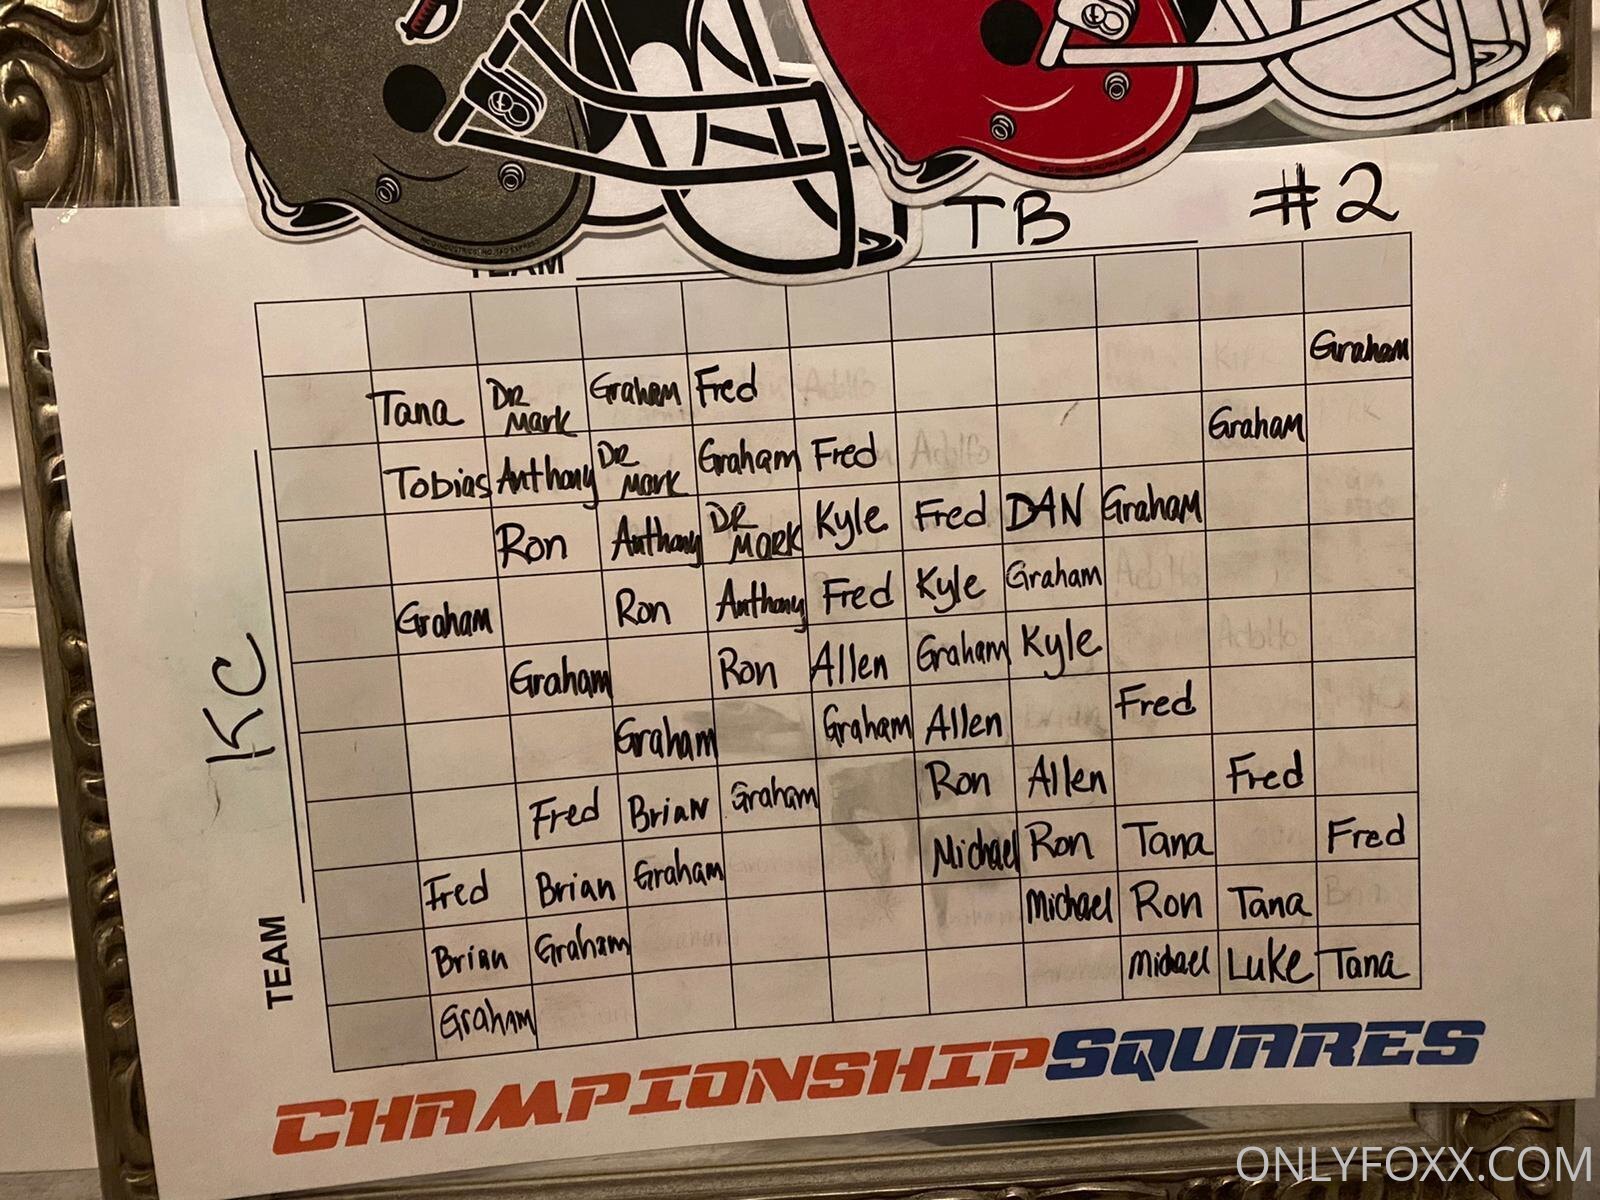 TB #2
TEAM
Graham
Tana DR Mark Graham Fred Adolfo
Graham
Tobias Anthony DR Mark Graham Fred Adolfo
Ron Anthony DR MARK Kyle Fred DAN Graham
Graham Ron Anthony Fred Kyle Graham Adolfo
Graham Ron Allen Graham Kyle Adolfo
Graham Graham Allen Fred
Fred Brian Graham Ron Allen Fred
Fred Brian Graham Michael Ron Tana Fred
Brian Graham Michael Ron Tana
Graham Michael Luke Tana
KC
TEAM
CHAMPIONSHIPSQUARES
ONLYFOXX.COM